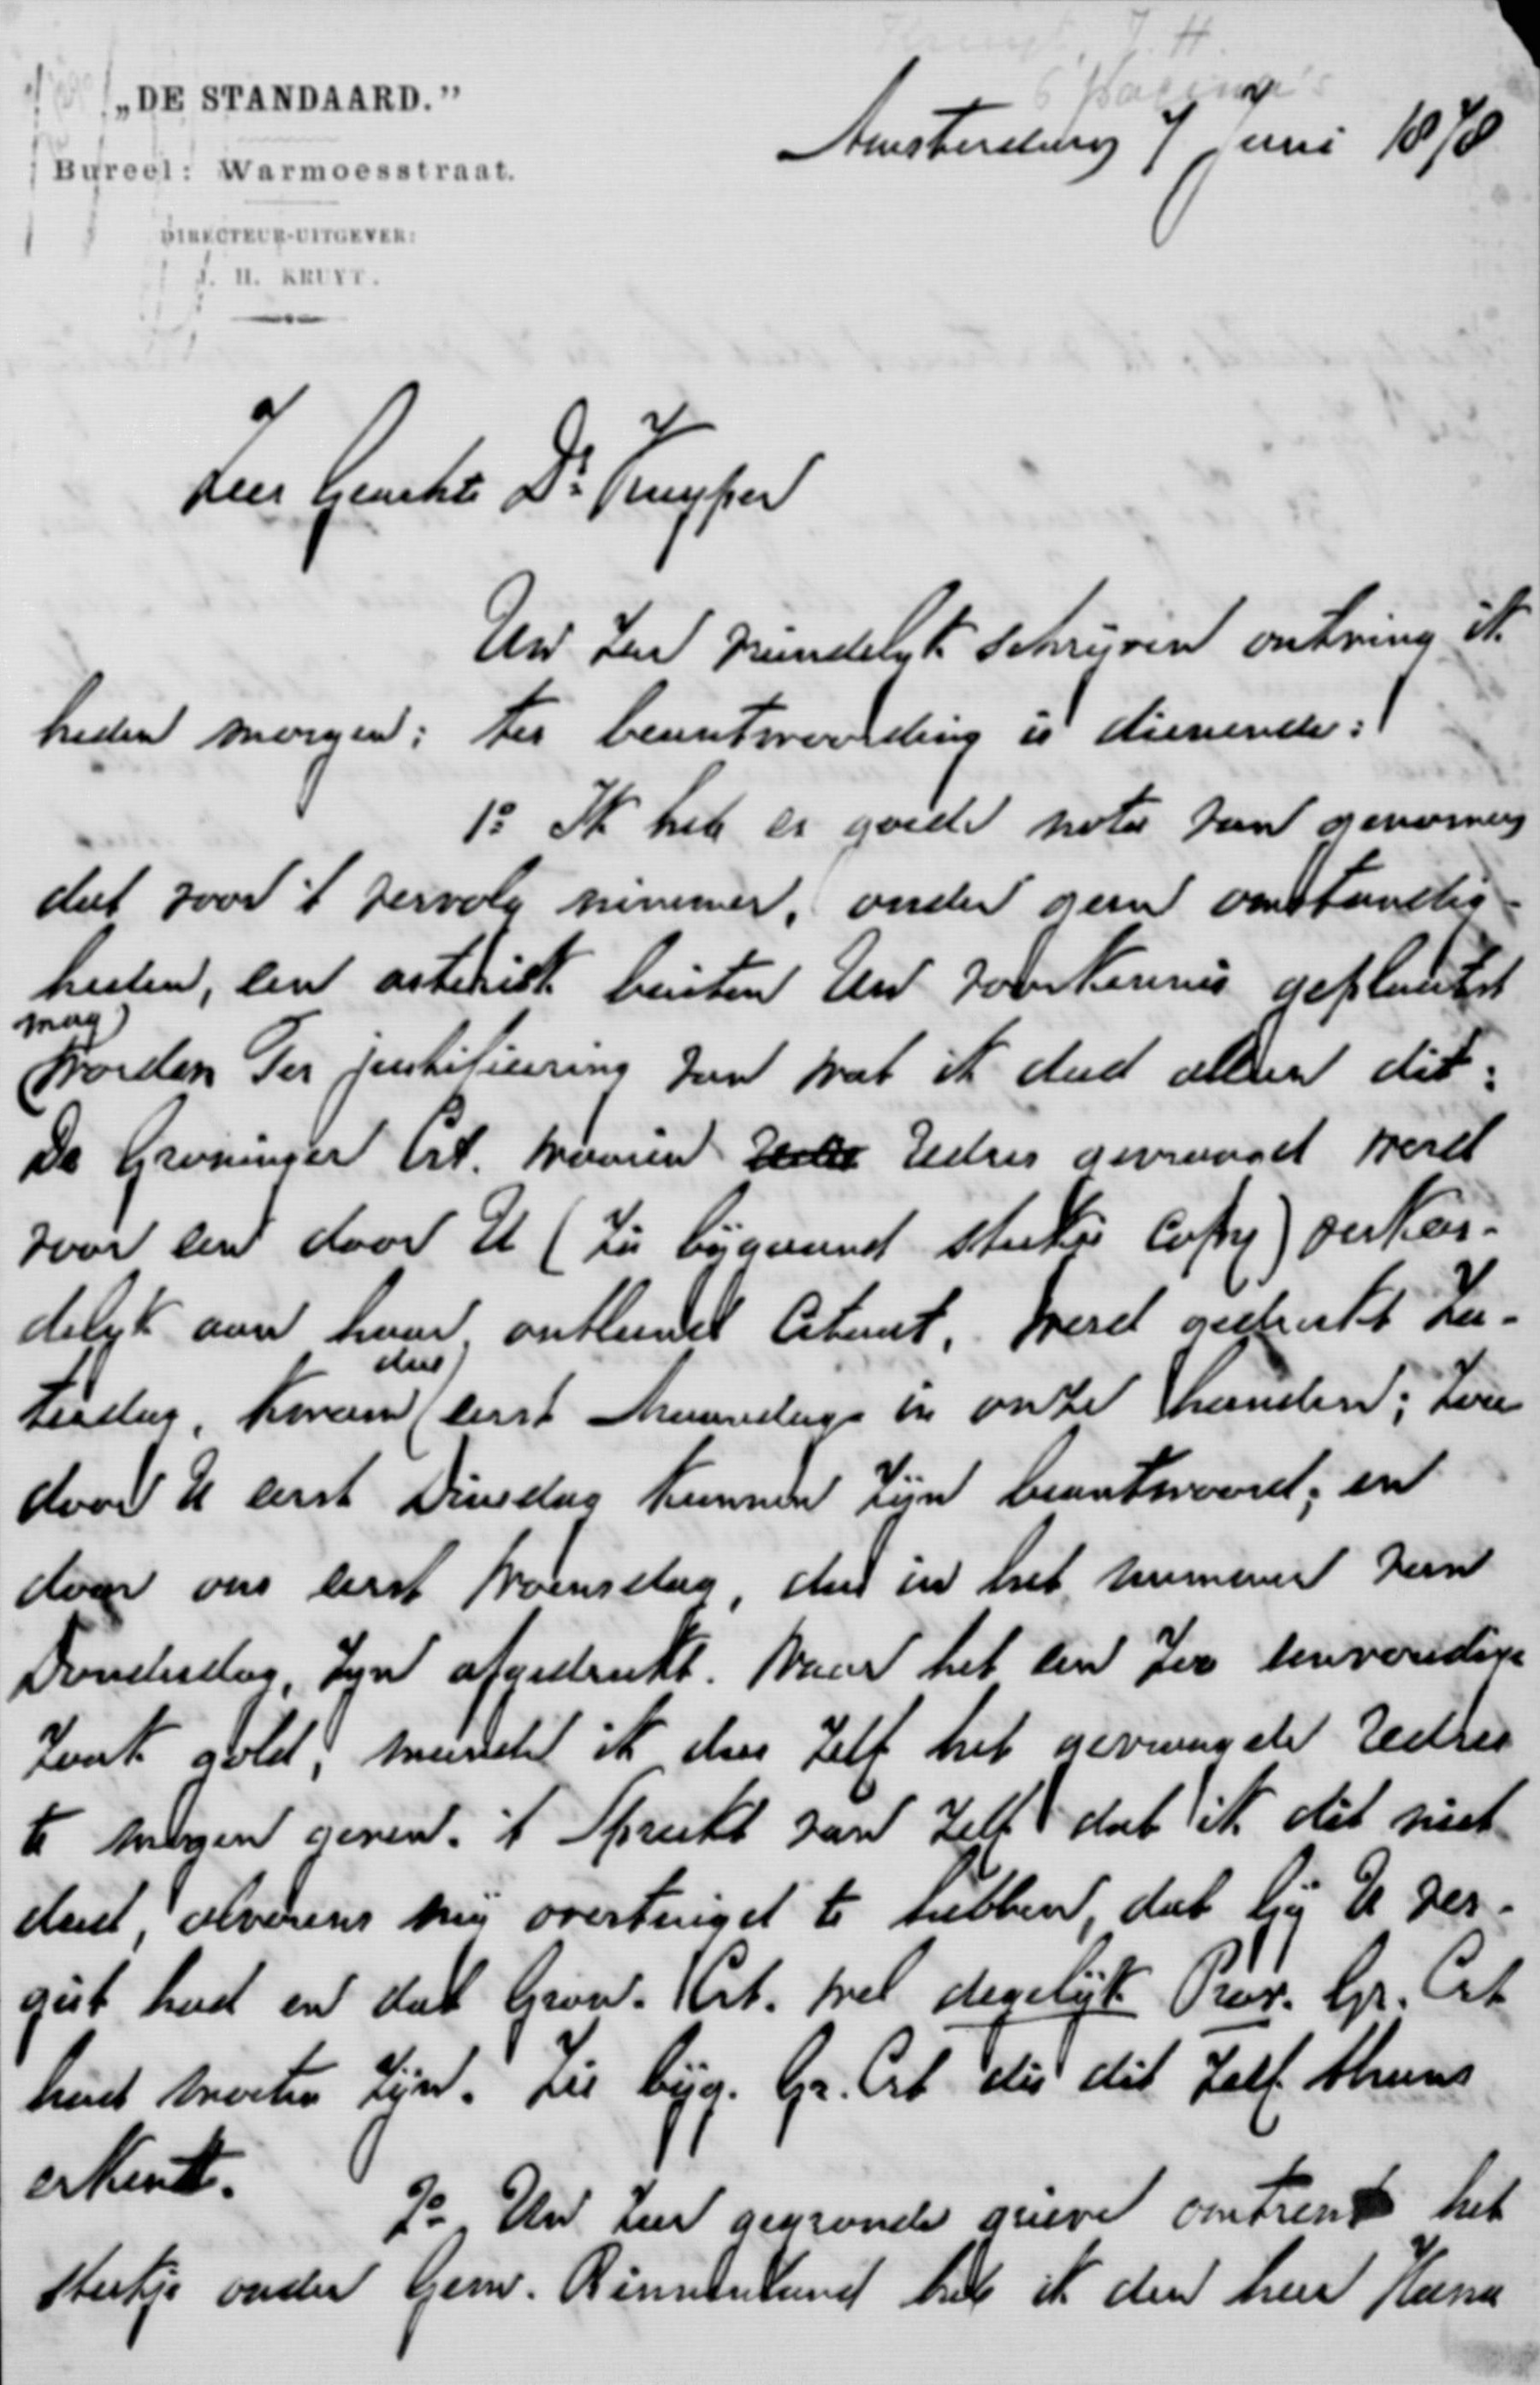 Kruyt, J. H.
6 pagina's
„DE STANDAARD.”
Amsterdam 7 Juni 1878
Bureel: Warmoesstraat.
DIRECTEUR-UITGEVER:
J. H. KRUYT.
Zeer Geachte Dr. Kuyper
Uw zeer vriendelyk schrijven ontving ik
heden morgen; ter beantwoording is dienende:
1o Ik heb er goede nota van genomen
dat voor 't vervolg nimmer, onder geen omstandig-
heden, een asterisk buiten Uw voorkennis geplaatst
mag
worden Ter justificering van wat ik deed alleen dit:
De Groninger Crt. waarin redres gevraagd werd
voor een door U (zie bijgaand stukje copy) verkeer-
delijk aan haar ontleend Citaat, werd gedrukt Za-
dus
terdag, kwam eerst Maandags in onze handen; zou
door U eerst Dinsdag kunnen zijn beantwoord; en
door ons eerst Woensdag, dus in het nummer van
Donderdag, zyn afgedrukt. Waar het een zoo eenvoudige
zaak gold, meende ik dus zelf het gevraagde redres
te mogen geven. 't Spreekt van zelf dat ik dit niet
deed, alvorens mij overtuigd te hebben, dat bij U ver-
gist had en dat Gron. Crt. wel degelijk Prov. Gr. Crt
had moeten zijn. Zie bijg. Gr. Crt die dit zelf thans
erkent.
2o. Uw zeer gegronde grieve omtrent het
stukje onder Gem. Binnenland heb ik den heer